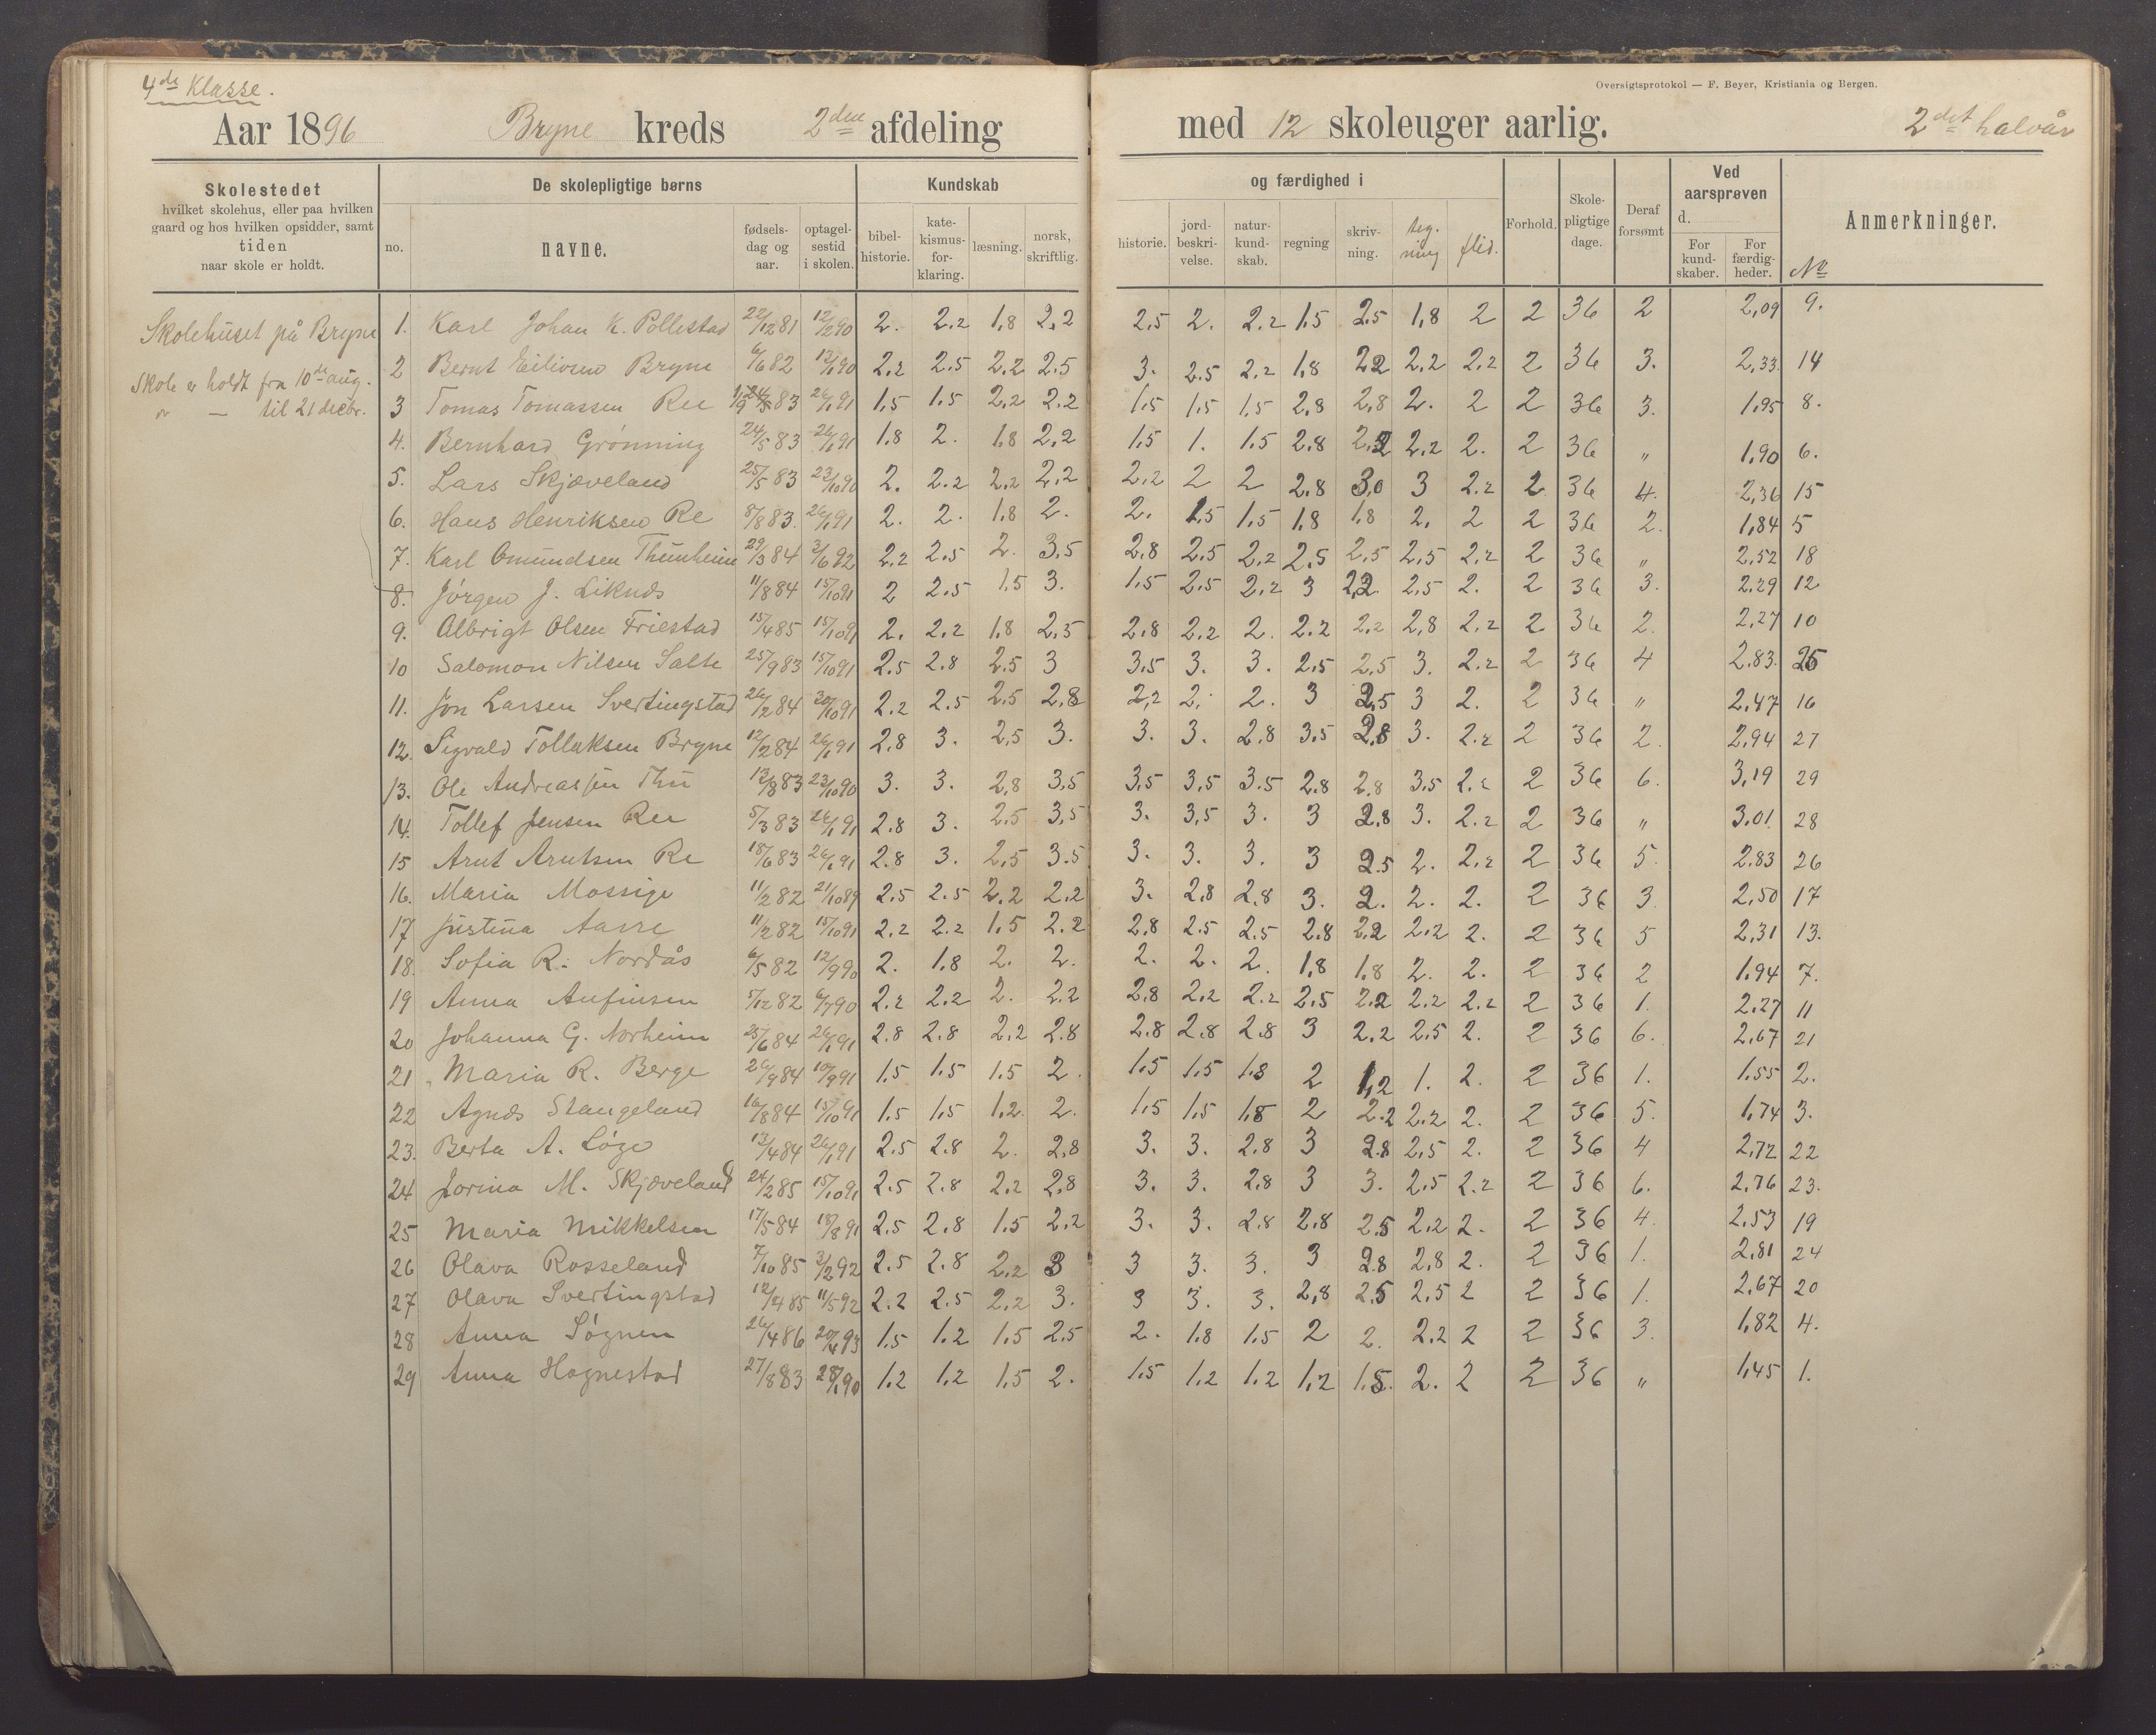 4de Klasse.
Oversigtsprotokol — F. Beyer, Kristiania og Bergen.
Aar 1896 Bryne kreds 2den afdeling med 12 skoleuger aarlig. 2det halvår
Skolestedet hvilket skolehus, eller paa hvilken gaard og hos hvilken opsidder, samt tiden naar skole er holdt.
De skolepligtige børns
no. navne. fødselsdag og aar. optagelsestid i skolen.
Kundskab og færdighed i
bibelhistorie. katekismusforklaring. læsning. norsk, skriftlig. historie. jordbeskrivelse. naturkundskab. regning skrivning. tegning flid.
Forhold. Skolepligtige dage. Deraf forsømt
Ved aarsprøven d. For kundskaber. For færdigheder.
Anmerkninger. No
Skolehuset på Bryne
Skole er holdt fra 10de aug.
" — til 21 decbr.
1. Karl Johan K. Pollestad 22/12 81 12/2 90 2. 2.2 1,8 2,2 2,5 2. 2.2 1.5 2.5 1,8 2 2 36 2 2,09 9.
2 Bernt Eilivsen Bryne 6/6 82 13/1 90 2.2 2.5 2.2 2.5 3. 2.5 2.2 1.8 2.2 2.2 2.2 2 36 3. 2,33. 14
3 Tomas Tomassen Ree 1/9 83 26/1 91 1.5 1.5 2,2 2.2 1.5 1.5 1.5 2,8 2,8 2. 2 2 36 3. 1,95 8.
4. Bernhard Grønning 24/5 83 26/1 91 1.8 2. 1.8 2,2 1.5 1. 1.5 2.8 2,2 2.2 2. 2 36 " 1,90 6.
5. Lars Skjæveland 25/5 83 23/10 90 2. 2.2 2.2 2,2 2,2 2 2 2.8 3,0 3 2.2 2 36 4. 2,36 15
6. Hans Henriksen Re 8/8 83. 26/1 91 2. 2. 1.8 2. 2. 1.5 1.5 1.8 1.8 2. 2 2 36 2. 1,84 5
7. Karl Omundsen Thunheim 29/3 84 3/6 92 2.2 2.5 2. 3,5 2.8 2.5 2.2 2.5 2.5 2,5 2.2 2 36 " 2,52 18
8. Jørgen J. Liknes 11/8 84 15/10 91 2 2.5 1.5 3. 1.5 2.5 2.2 3 2,2 2,5 2. 2 36 3. 2.29 12
9. Albrigt Olsen Friestad 15/4 85 15/10 91 2. 2.2 1.8 2,5 2.8 2.2 2. 2.2 2.2 2,8 2.2 2 36 2. 2,27 10
10 Salomon Nilsen Salte 25/9 83 15/10 91 2.5 2.8 2.5 3 3.5 3. 3. 2.5 2.5 3. 2.2 2 36 4 2.83. 25
11. Jon Larsen Svertingstad 26/2 84 30/10 91 2.2 2.5 2.5 2,8 2,2 2. 2. 3 2.5 3 2. 2 36 " 2,47 16
12. Sigvald Tollaksen Bryne 12/2 84 26/1 91 2.8 3. 2,5 3. 3. 3. 2.8 3.5 2,8 3. 2.2 2 36 2. 2,94 27
13. Ole Andreassen Thu 13/8 83 23/10 90 3. 3. 2,8 3,5 3,5 3,5 3.5 2.8 2.8 3,5 2.2 2 36 6. 3,19 29
14. Tollef Jensen Ree 5/3 83 26/1 91 2.8 3. 2.5 3,5 3. 3,5 3. 3 2.8 3. 2.2 2 36 " 3.01. 28
15 Arnt Arntsen Re 18/6 83 26/1 91 2.8 3. 2,5 3.5 3. 3. 3. 3 2.5 2. 2.2 2 36 5. 2.83 26
16. Maria Mossige 11/2 82 21/10 89 2.5 2.5 2.2 2,2 3. 2,8 2,8 3. 2. 2. 2. 2 36 3. 2,50 17
17 Justina Aarre 11/2 82 15/10 91 2.2 2.2 1.5 2.2 2,8 2.5 2.5 2.8 2.2 2.2 2. 2 36 5 2,31 13.
18. Sofia R. Nordås 6/5 82 12/9 90 2. 1.8 2. 2. 2. 2. 2. 1,8 1.8 2. 2. 2 36 2 1.94 7.
19 Anna Aufinsen 5/12 82 6/7 90 2.2 2.2 2. 2.2 2.8 2,2 2.2 2.5 2.2 2.2 2.2 2 36 1. 2.27 11
20 Johanna G. Norheim 25/6 84 26/1 91 2.8 2.8 2,2 2.8 2.8 2.8 2.8 3 2,2 2,5 2. 2 36 6. 2,67 21
21 Maria R. Berge 26/9 84 10/9 91 1.5 1.5 1.5 2. 1.5 1.5 1.8 2 1,2 1. 2. 2 36 1. 1.55 2.
22 Agnes Stangeland 16/8 84 15/10 91 1.5 1.5 1,2. 2. 1.5 1.5 1,8 2 2.2 2.2 2. 2 36 5. 1,74 3.
23. Berta A. Løge 13/4 84 26/1 91 2.5 2.8 2. 2,8 3. 3. 2.8 3 2.8 2,5 2. 2 36 4 2,72 22
24 Jorina M. Skjæveland 24/2 85 15/10 91 2.5 2.8 2,2 2,8 3. 3. 2.8 3 3. 2.5 2.2 2 36 6. 2,76 23.
25 Maria Mikkelsen 17/5 84 18/8 91 2.5 2.8 1.5 2,2 3. 3. 2.8 2.8 2.5 2,2 2. 2 36 4. 2.53 19
26 Olava Rosseland 7/10 85 3/2 92 2.5 2.8 2,2 3 3 3. 3. 3 2.8 2,8 2. 2 36 1. 2,81 24
27 Olava Svertingstad 12/4 85 11/5 92 2.2 2.5 2,2 3. 3 3. 3. 2,8 2.5 2.5 2 2 36 1. 2,67 20
28 Anna Søgnen 26/4 86 20/4 93 1.5 1.2 1.5 2.5 2. 1.8 1.5 2 2. 2.2 2 2 36 3. 1,82 4.
29 Anna Hognestad 27/8 83 28/1 90 1.2 1.2 1.5 2. 1.5 1.2 1.2 1.2 1.5. 2. 2 2 36 " 1,45 1.